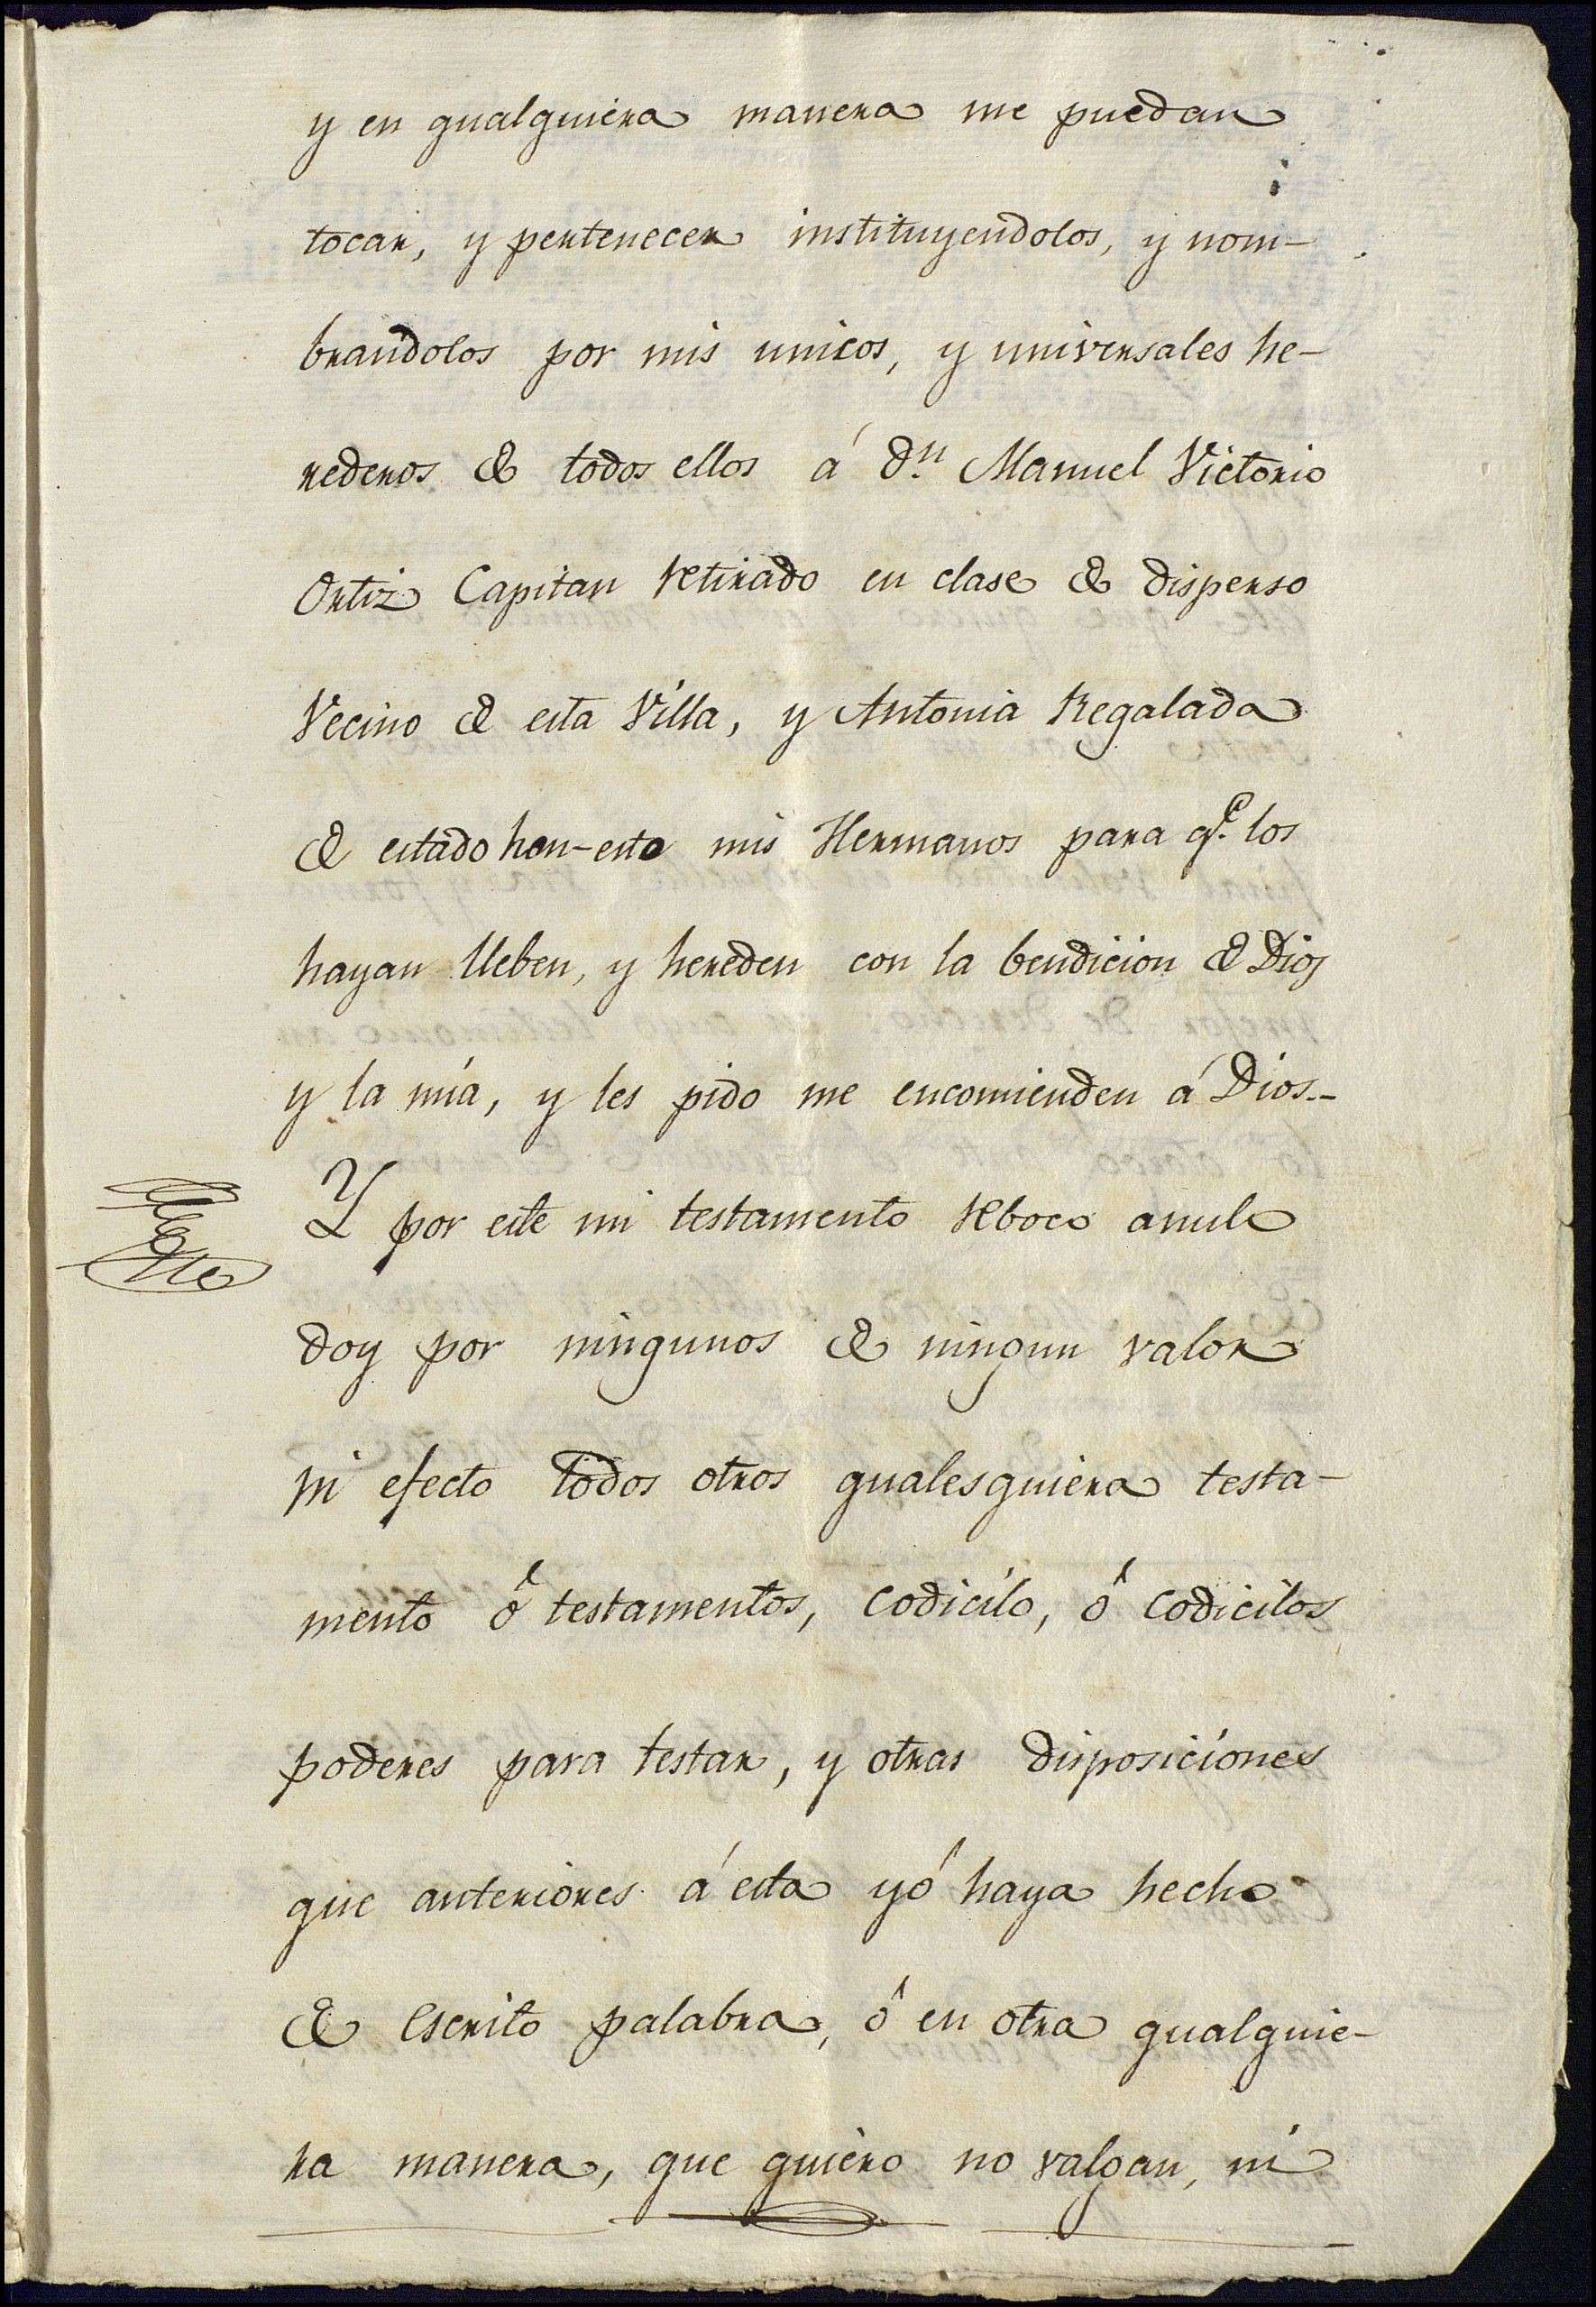 y en qualquiera manera me puedan
tocar, y pertenecer instituyendolos, y nom-
brandolos por mis unicos, y universales he-
rederos de todos ellos á Dn. Manuel Victorio
Ortiz Capitan retirado en clase de disperso
Vecino de esta Villa, y Antonia Regalada
de estado hon-esto mis Hermanos para qe. los
hayan lleben, y hereden con la bendicion de Dios
y la mia, y les pido me encomienden á Dios.-
Y por este mi testamento reboco anulo
doy por ningunos de ningun valor
ni efecto todos otros qualesquiera testa-
mento ó testamentos, codicilo, ó codicilos
poderes para testar, y otras disposiciones
que anteriores á esta yó haya hecho
de escrito palabra, ó en otra qualquie-
ra manera, que quiero no valgan, ni